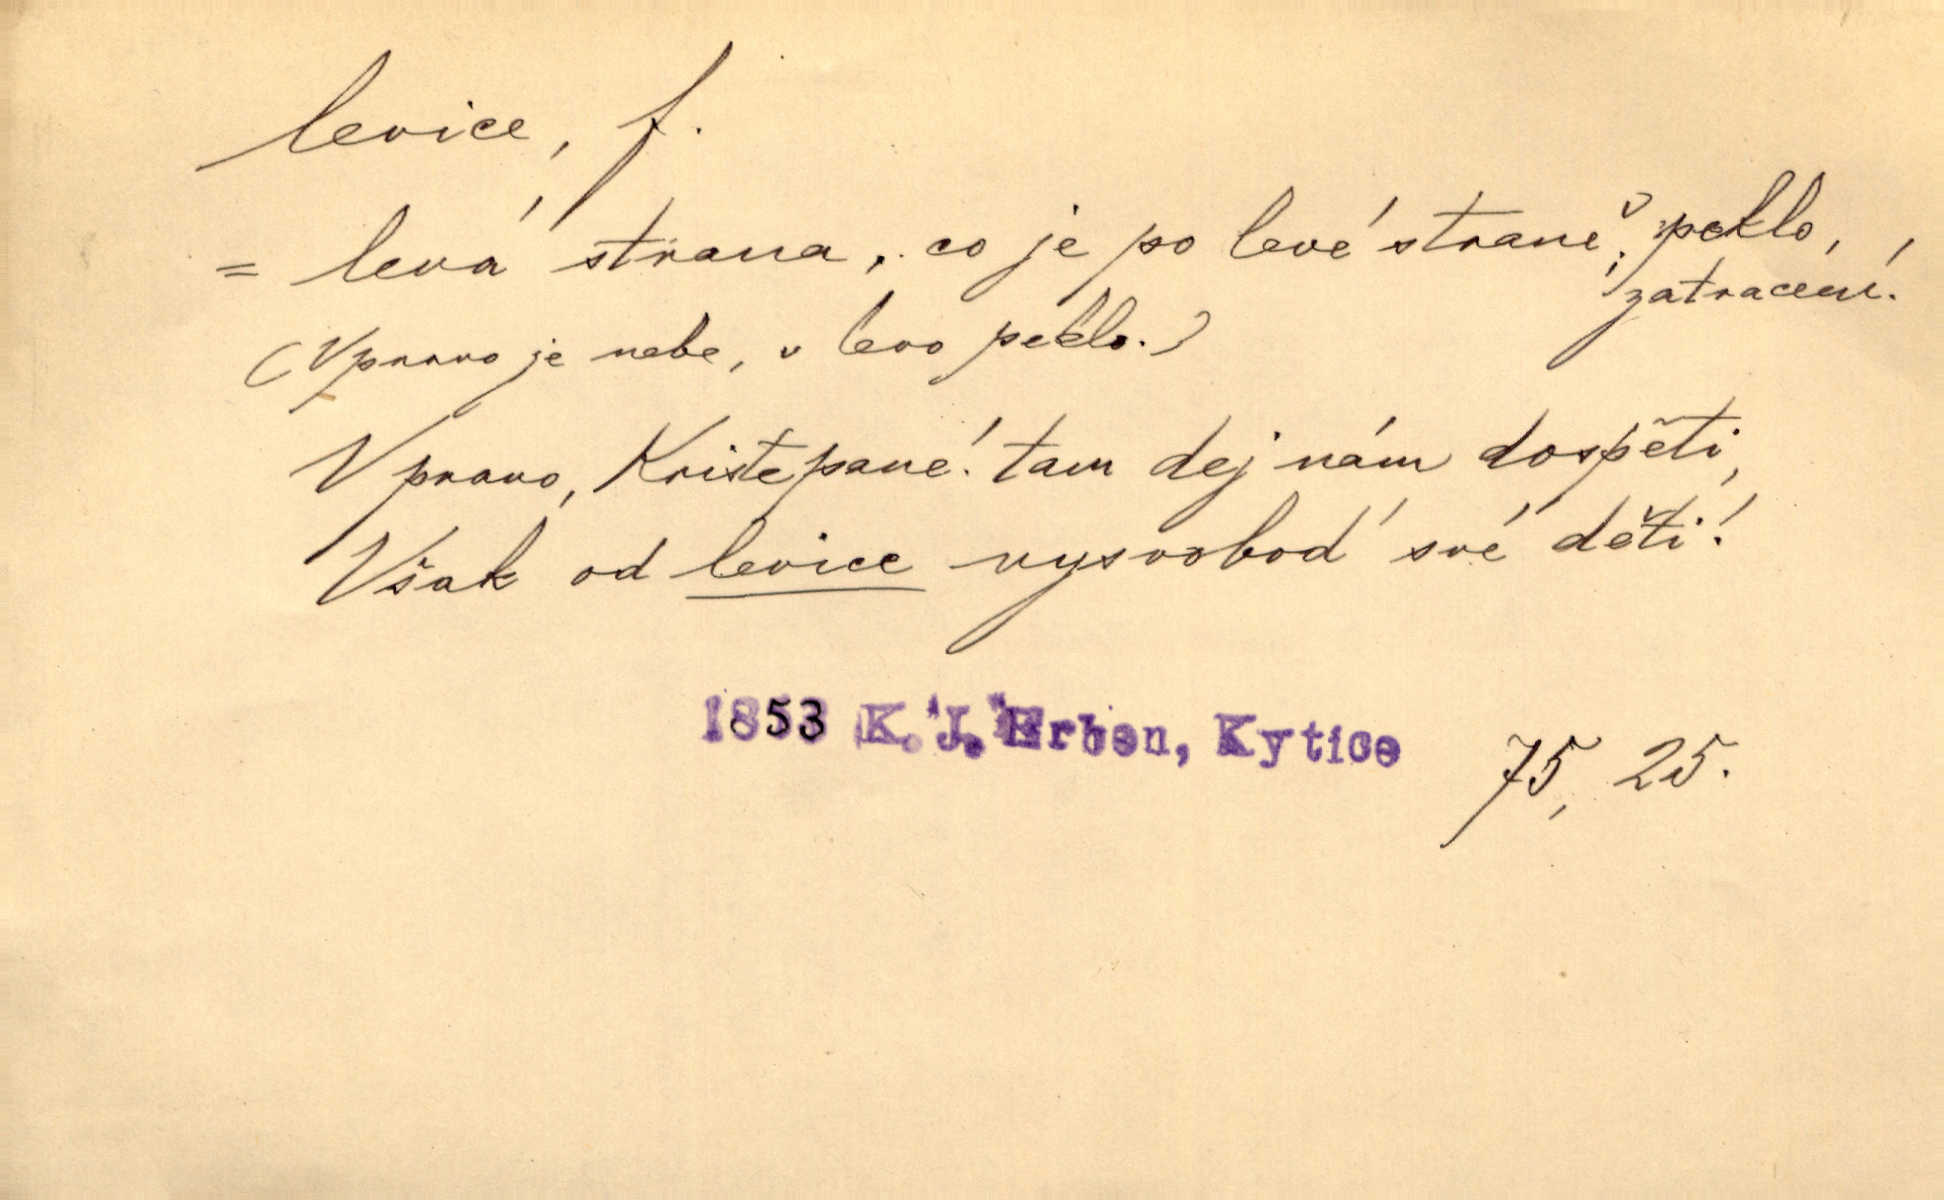 levice, f.
= levá strana, co je po levé straně; peklo,
zatracení.
(V pravo je nebe, v levo peklo.)
V pravo, Kriste pane! tam dej nám dospěti,
Však od levice vysvoboď své děti!
1853 K. J. Erben, Kytice 75, 25.